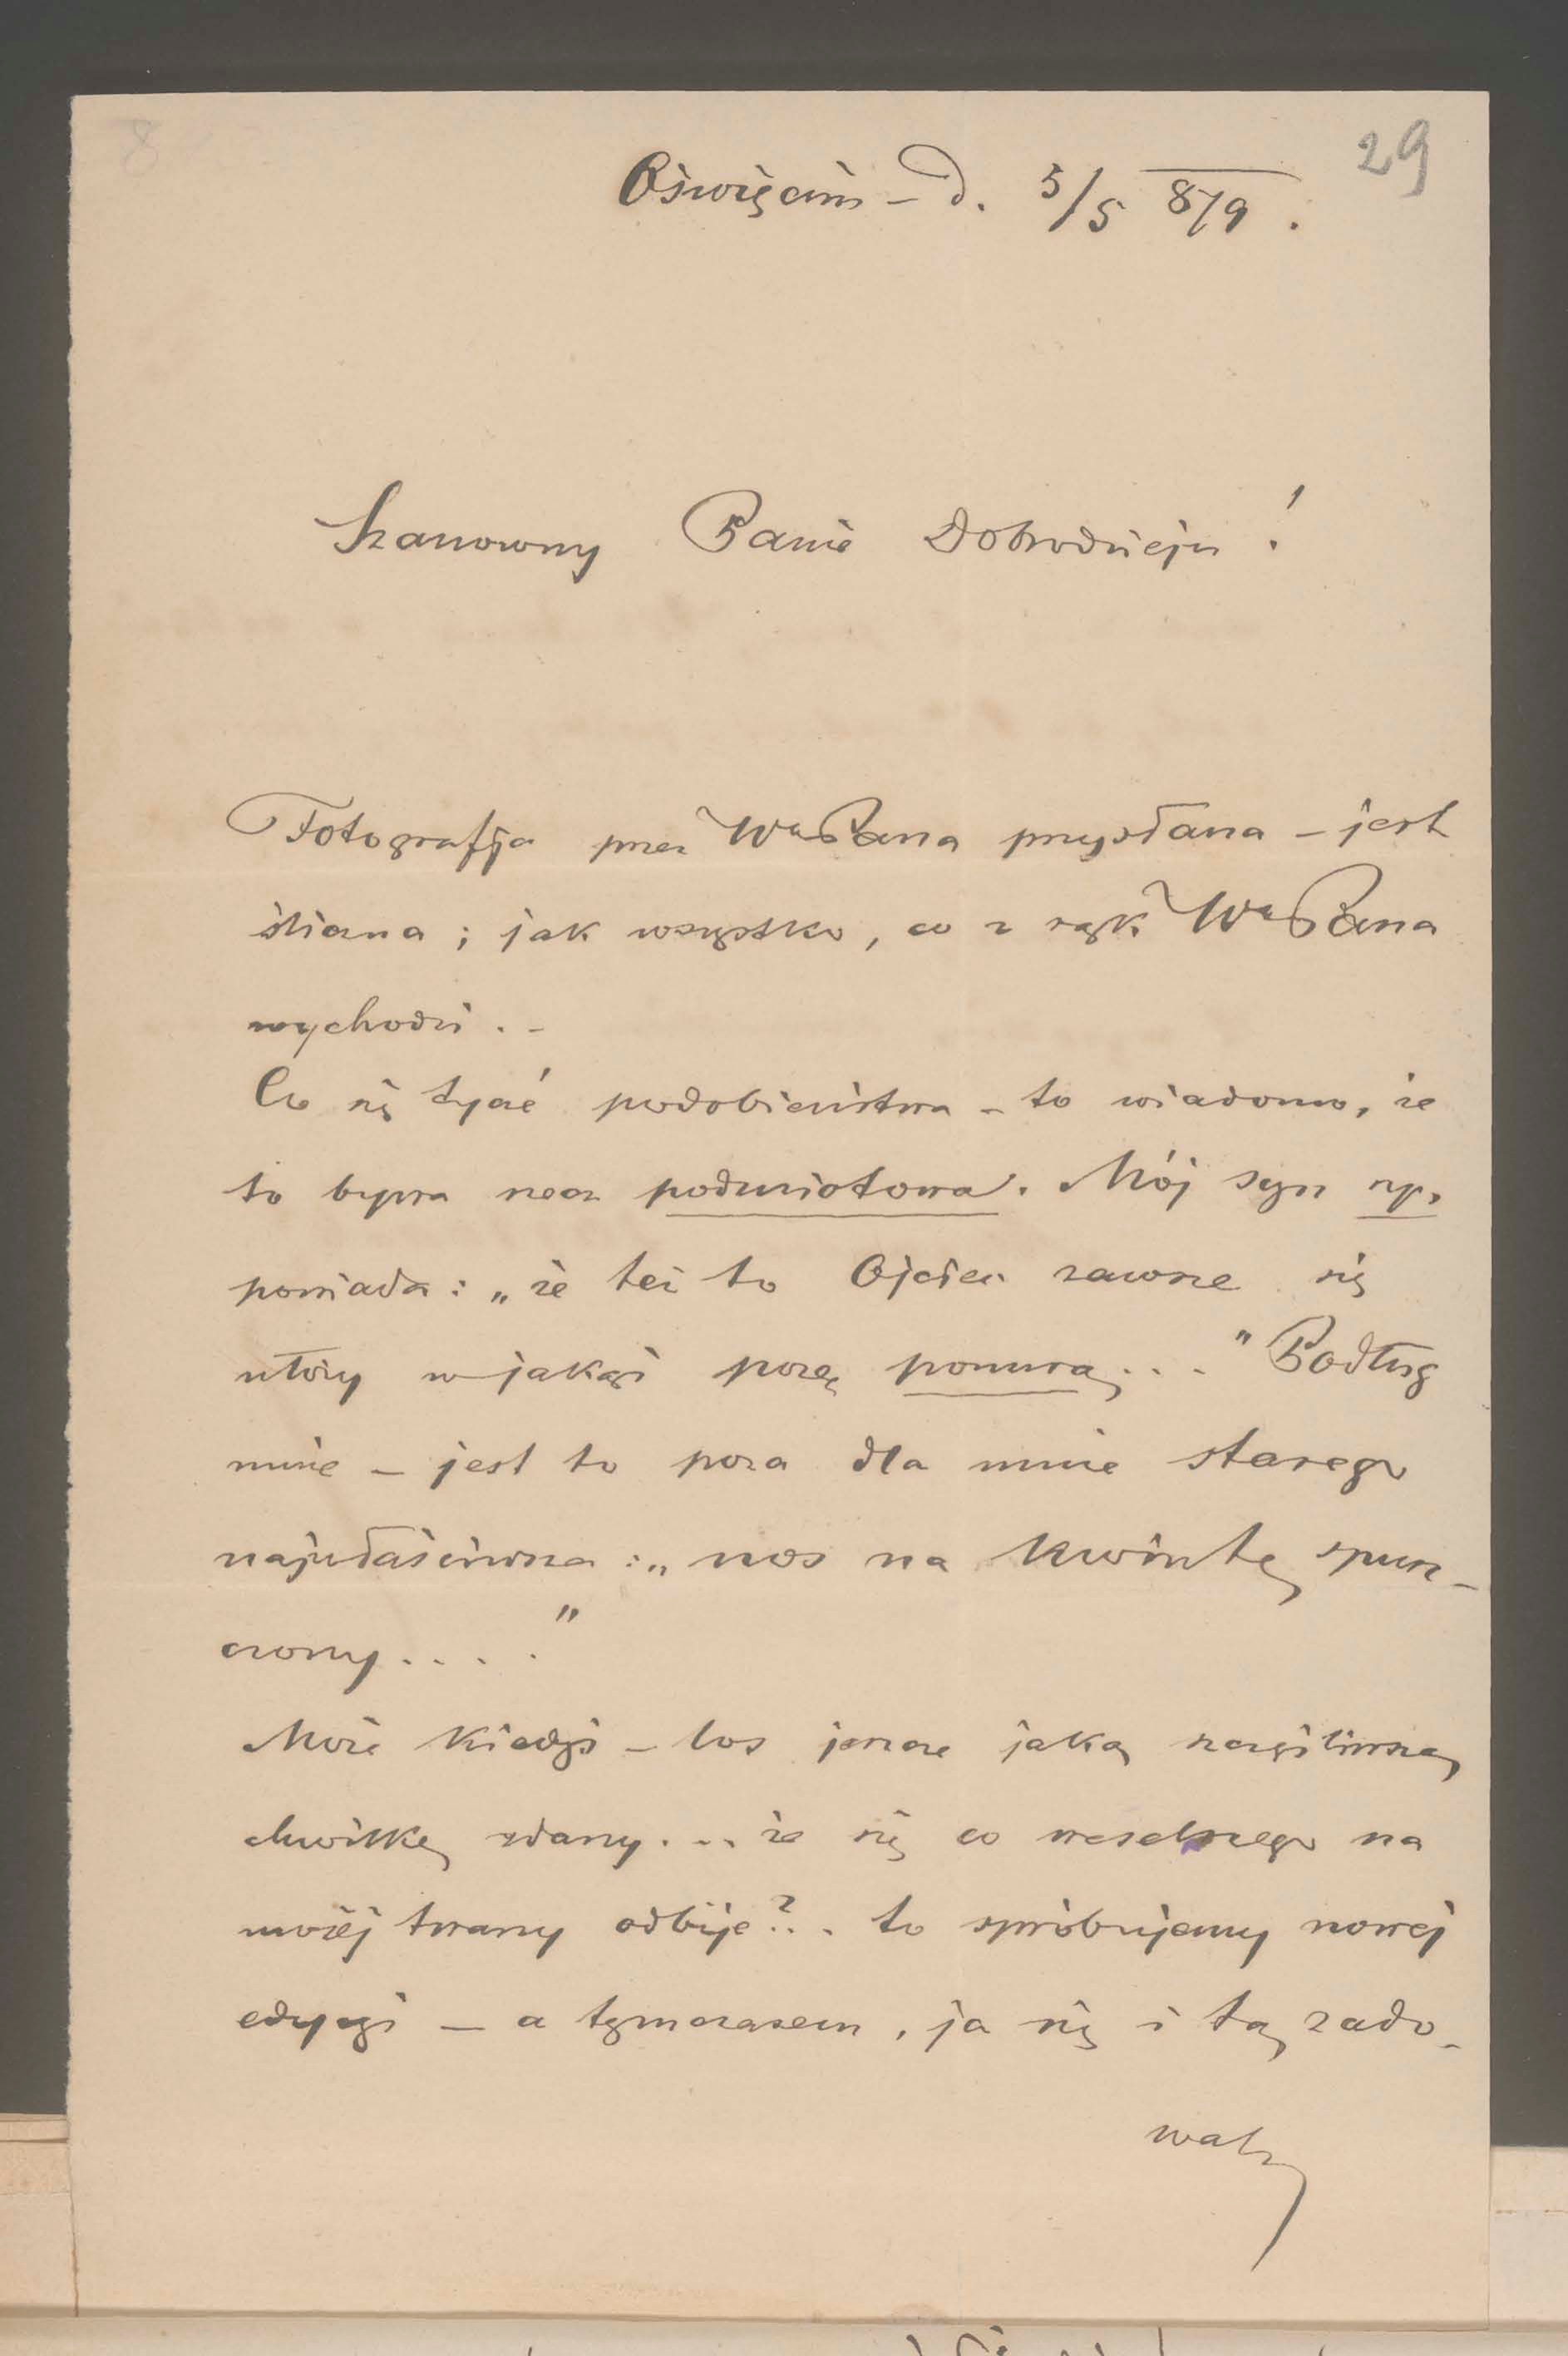 29
8
Oświęcim – d. 5/5 879.
Szanowny Panie Dobrodzieju!
Fotografja przez WnPana przysłana – jest
śliczna; jak wszystko, co z rąk WnPana
wychodzi . –
Co się tycze podobieństwa – to wiadomo, że
to bywa rzecz podmiotowa. Mój syn np.
powiada: „że też to Ojciec zawsze się
ułoży w jakąś pozę ponurą . . ." Podług
mnie – jest to poza dla mnie starego
najwłaściwsza: „nos na kwintę spusz-
czony . . . ."
Może kiedyś – los jeszcze jaką szczęśliwszą
chwilkę zdarzy . . . że się co weselszego na
mojéj twarzy odbije? . . to spróbujemy nowej
edycyi – a tymczasem, ja się i tą zado-
walę